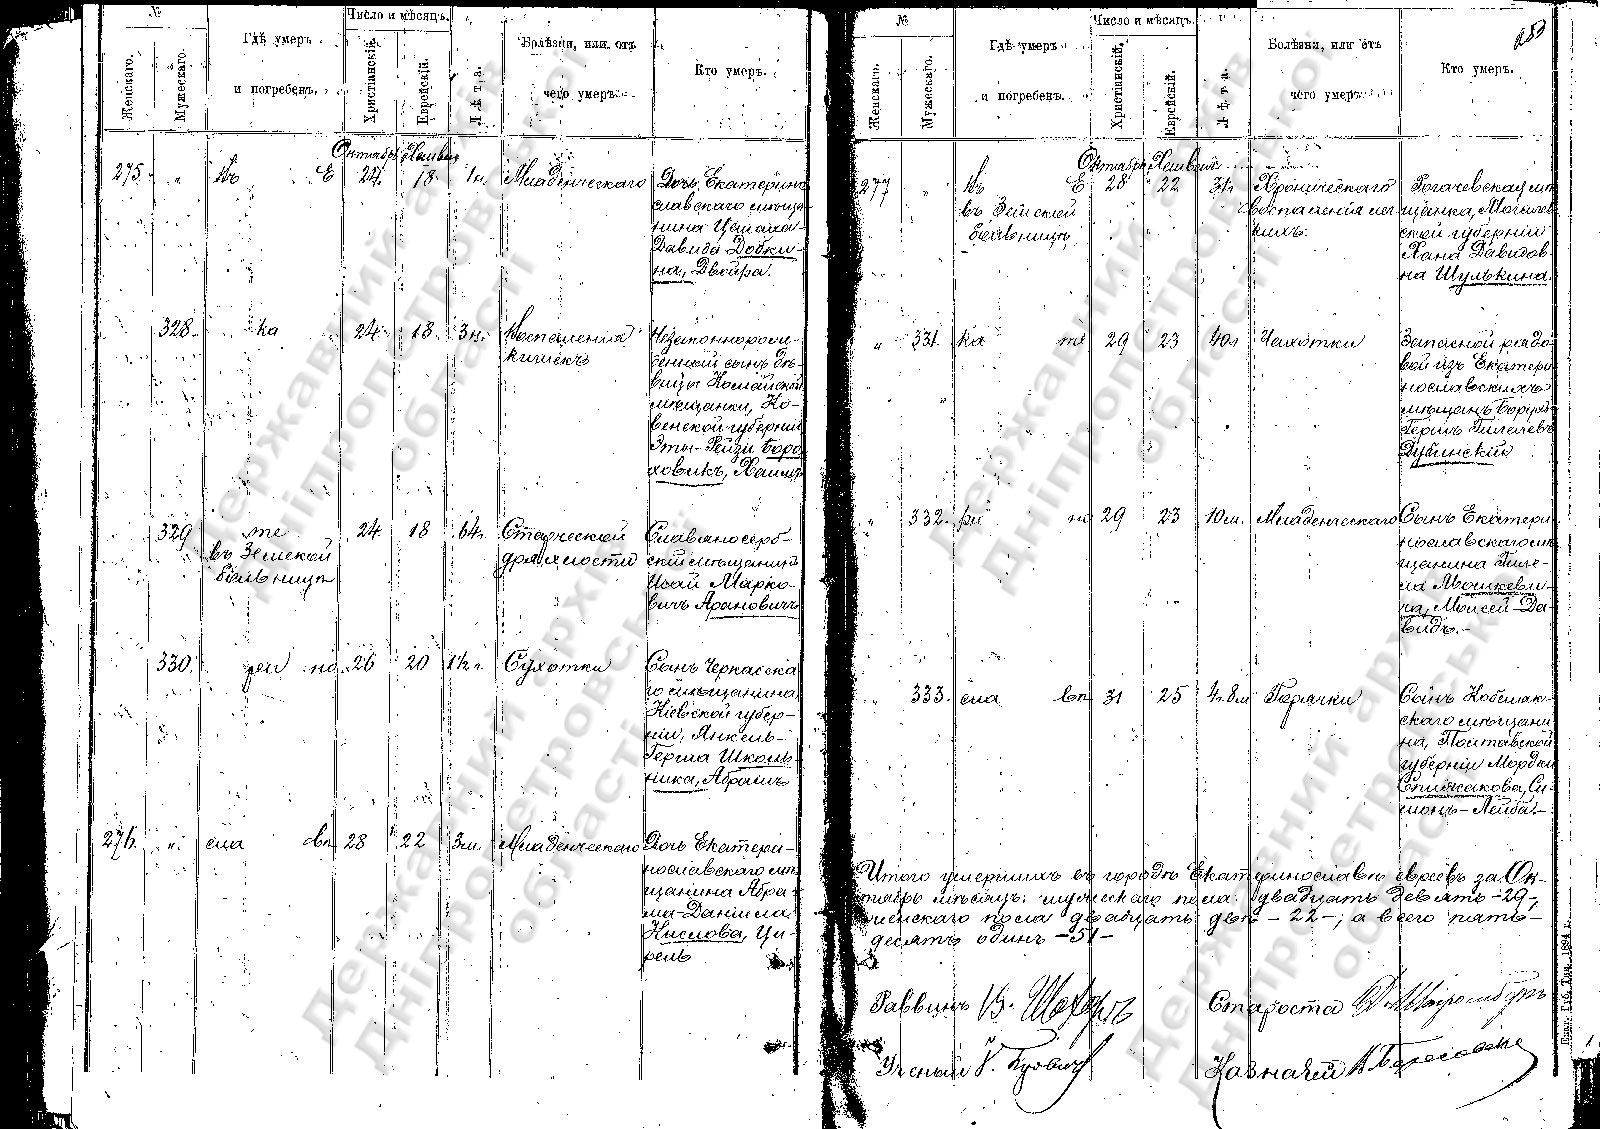 №
Женскаго.
Мужескаго.
Гдѣ умеръ
и погребенъ.
Число и мѣсяцъ.
Христіанскій.
Еврейскій.
Лѣта.
Болѣзни, или отъ
чего умеръ.
Кто умеръ.
Октябрь
275
Въ Е
24
18
Младенческаго
Дочь Екатерино
славскаго мѣща
нина
Давида Добки-
на, Двойра.
328
ка
24
18
3 н.
Воспаленія
кишекъ
Незаконнорож
денный сынъ дѣ
вицы
мѣщанки, Ко-
венской губерніи
Боро
ховикъ, Хаимъ
329
те
въ Земской
больницѣ
24
18
64
Старческой
дряхлости
Славяносерб-
скій мѣщанинъ
Исай Марко-
вичъ Арановичъ
330.
рей но
26
20
1½ г.
Сухотки
Сынъ Черкасска
го мѣщанина,
Кіевской губер-
ніи, Янкель-
Герша Школь
ника, Абрамъ
276.
сла
28
22
3 м.
Младенческаго
Дочь Екатери-
нославскаго мѣ
щанина Абра-
ма-Даніила
Кислова, Ци-
рель
№
Женскаго.
Мужескаго.
Гдѣ умеръ
и погребенъ.
Число и мѣсяцъ.
Христіанскій.
Еврейскій.
Лѣта.
Болѣзни, или отъ
чего умеръ.
Кто умеръ.
Октябрь
277
Въ Е
въ Земской
больницѣ
28
22
Хроническаго
воспаленія лег
кихъ.
Рогачевская мѣ
щанка, Могилев
ской губерніи
Хана Давидов
на Шулькина
331.
ка те
29
23
40 л
Чахотки
Запасной рядо
вой изъ Екатери
нославскихъ
мѣщанъ
Дубинскій
332.
ри но
29
23
10 м.
Младенческаго
Сынъ Екатери
нославскаго мѣ
щанина Гиле-
ля Мошкеви-
ча, Моисей-Да-
видъ.-
333.
сла
31
25
4 г. 8 м
Горячки
Сынъ Кобеляк-
скаго мѣщани
на, Полтавской
губерніи Мордки
Спичакова, Си-
монъ-Лейба.-
Итого умершихъ въ городѣ Екатеринославѣ евреевъ за Ок-
тябрь мѣсяцъ: мужескаго пола двадцать девять -29-,
женскаго пола двадцать двѣ -22-; а всего пять-
десятъ одинъ -51-
Раввинъ
Староста
Ученый
Казначей
Державний архів
Дніпропетровської
області